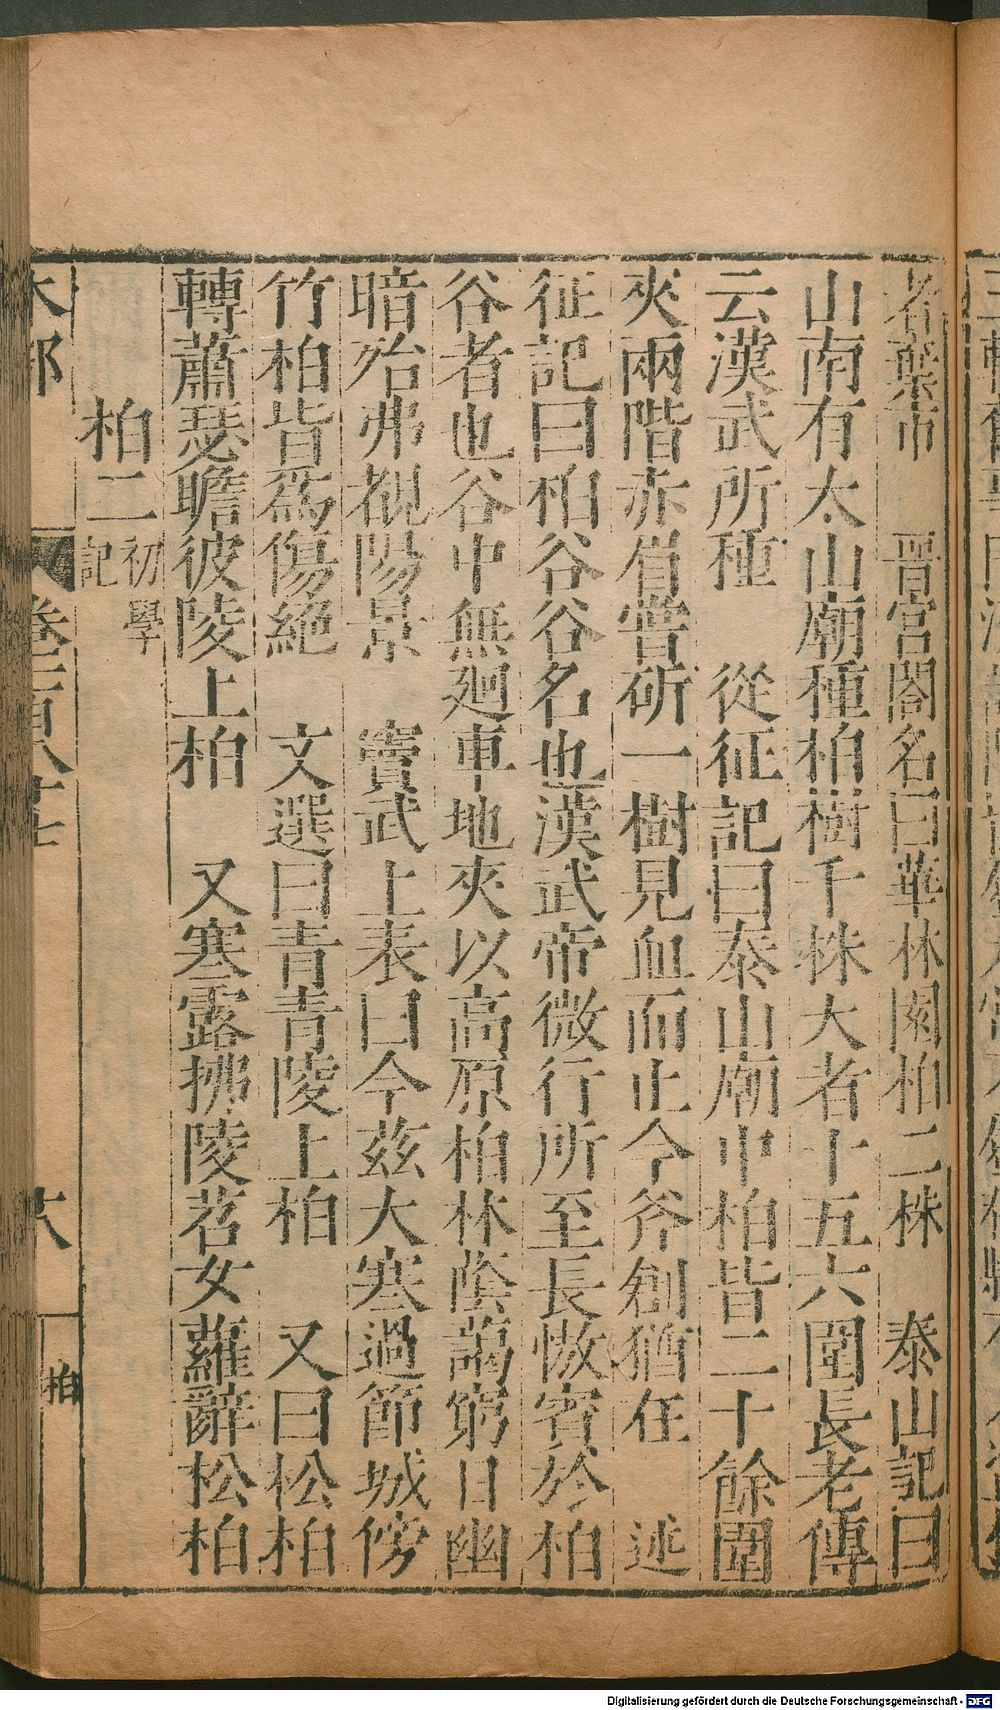 名葉市　晉宮閣名曰華林園柏二株　泰山記曰
山南有太山廟種柏樹千株大者十五六圍長老傳
云漢武所種　從征記曰泰山廟中柏皆二十餘圍
夾兩階赤眉嘗斫一樹見血而止今斧創猶在　述
征記曰柏谷谷名也漢武帝微行所至長慠賓於柏
谷者也谷中無廻車地夾以高原柏林蔭藹窮日幽
暗殆弗覩陽景　竇武上表曰今茲大寒過節城傍
竹柏皆爲傷絕　文選曰青青陵上柏　又曰松柏
轉蕭瑟瞻彼陵上柏　又寒露拂陵苕女蘿辭松柏
柏二初學記
木部　卷三百八十七　十八　柏
Digitalisierung gefördert durch die Deutsche Forschungsgemeinschaft - DFG